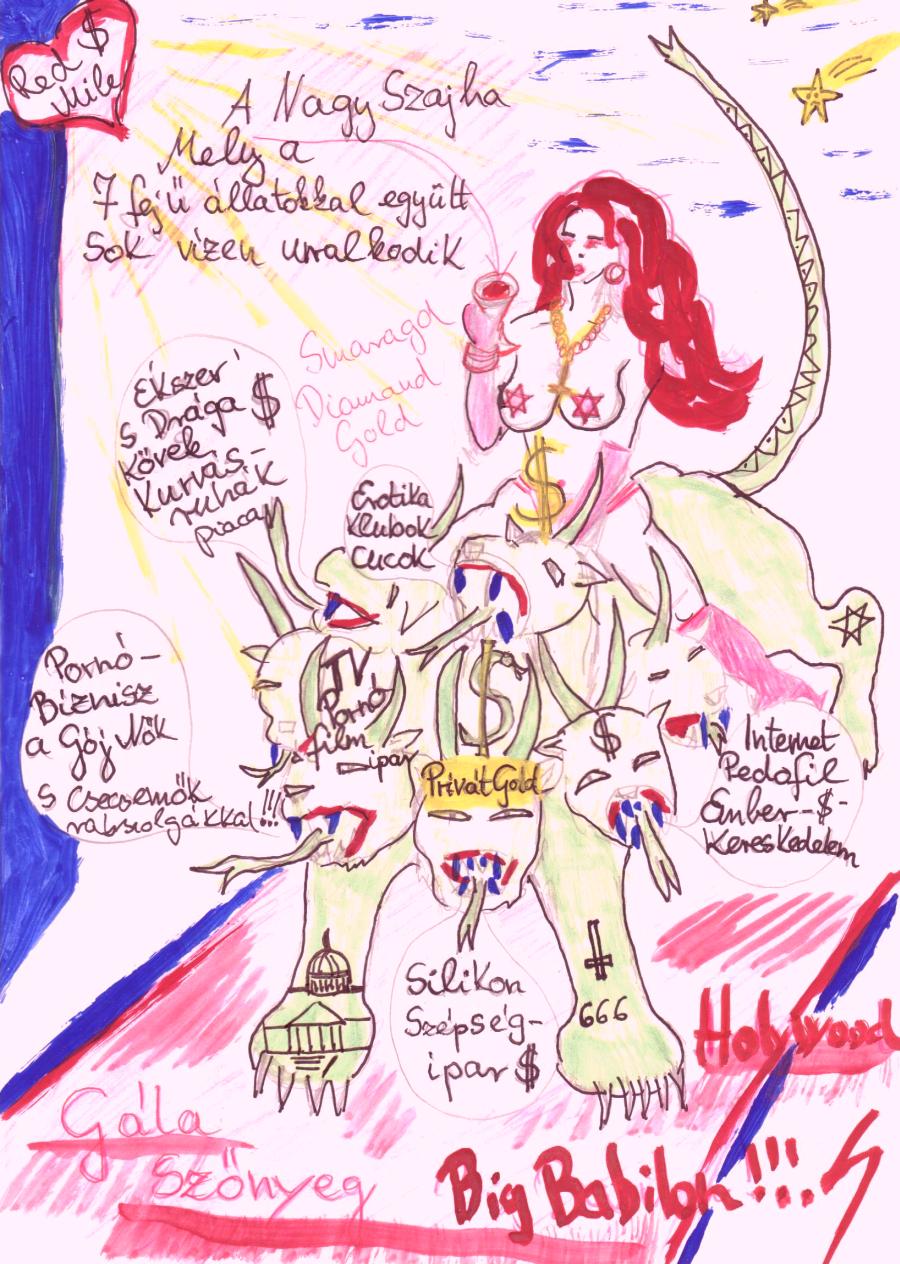 Red $
Mile
A Nagy Szajha
Mely a
7 fejű állatokkal együtt
Sok vizen uralkodik
Smaragd
Diamand
Gold
Ékszer
s Drága $
Kövek
Kurvás-
ruhák
piaca
Erotika
Klubok
Cucok
$
Pornó-
Biznisz
a Gój Nők
s Csecsemők
rabszolgákkal!!!
TV
Pornó
film
ipar
$
Privát Gold
$
Internet
Pedofil
Ember--$-
Kereskedelem
Silikon
Szépség-
ipar $
666
Holywood
Gála
Szőnyeg
Big Babilon!!!